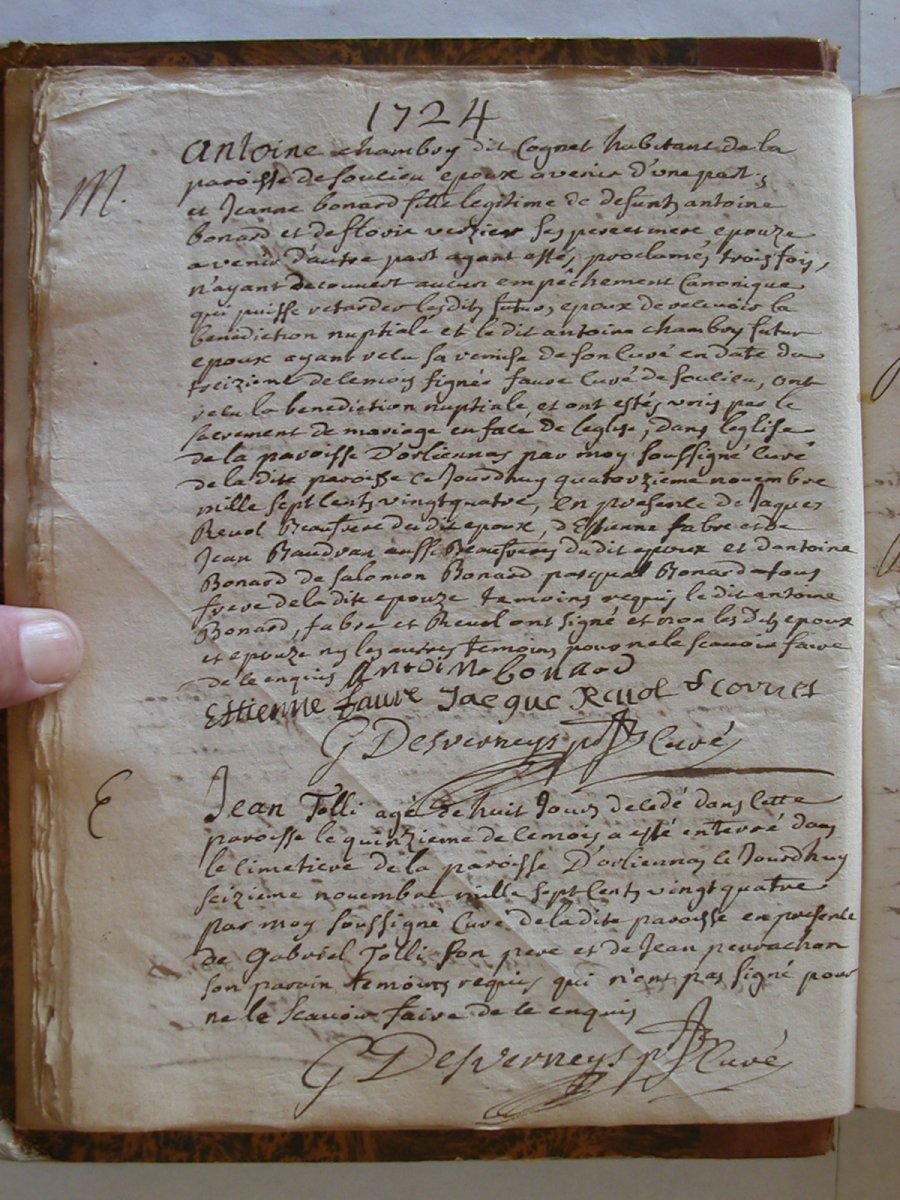 1724
M.
Antoine chambry dit Cognet habitant de la
paroisse de soulieu epoux avenir d'une part,
et Jeanne bonard fille legitime de defunts antoine
bonard et de florie verzier ses pere et mere epouze
avenir d'autre part ayant estés proclamés trois fois,
n'ayant decouvert aucun empêchement Canonique
qui puisse retarder lesdits futurs epoux de recevoir la
benediction nuptiale et le dit antoine chambry futur
epoux ayant recu sa remise de son curé en date du
treizieme de ce mois signée faure Curé de soulieu, ont
recu la benediction nuptiale, et ont estés unis par le
sacrement de mariage en face de leglise, dans leglise
de la paroisse D'orliennas par moy soussigné curé
de la dite paroisse ce Jourdhuy quatorzieme novembre
mille sept cents vingtquatre, en présence de Jaques
Revol Beaufrere du dit epoux, d'Estienne fabre et de
Jean Baudran aussi Beaufrere du dit epoux et dantoine
Bonard de salomon Bonard pasqual Bonard tous
frere de la dite epouze temoins requis le dit antoine
Bonard, fabre et Revol ont signé et non les dits epoux
et epouze ny les autres temoins pour ne le scavoir faire
de ce enquis Antoine bonnard
Estienne faure Jacque Revol
G Desverneys Curé
E
Jean Tolli agé de huit Jours decedé dans cette
paroisse le quinzieme de ce mois a esté enterré dans
le cimetiere de la paroisse D'orliennas ce Jourdhuy
seizieme novembre mille sept cents vingtquatre
par moy soussigné Curé de la dite paroisse en presence
de Gabriel Tolli son pere et de Jean perrachon
son parain temoins requis qui n'ont pas signé pour
ne le scavoir faire de ce enquis
G Desverneys Curé